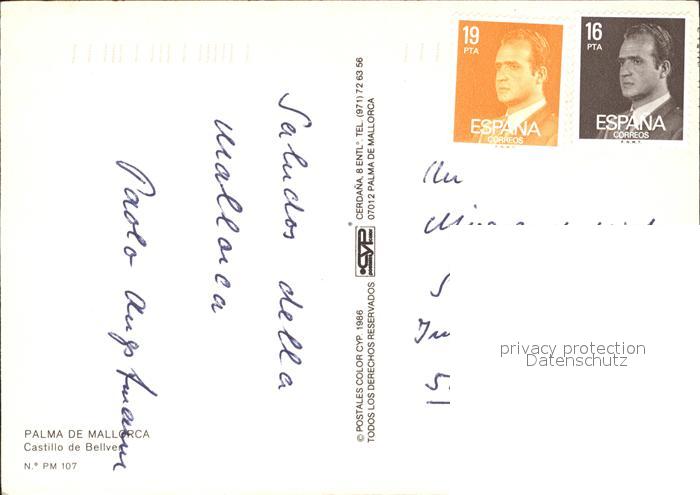 19
PTA
ESPAÑA
CORREOS
F.N.M.T.
16
PTA
ESPAÑA
CORREOS
F.N.M.T.
Saludos della
Mallorca
Paolo
CERDAÑA, 8 ENTLº. TEL. (971) 72 63 56
07012 PALMA DE MALLORCA
CYP
© POSTALES COLOR CYP. 1986
TODOS LOS DERECHOS RESERVADOS
An
privacy protection
Datenschutz
PALMA DE MALLORCA
Castillo de Bellver
N.º PM 107